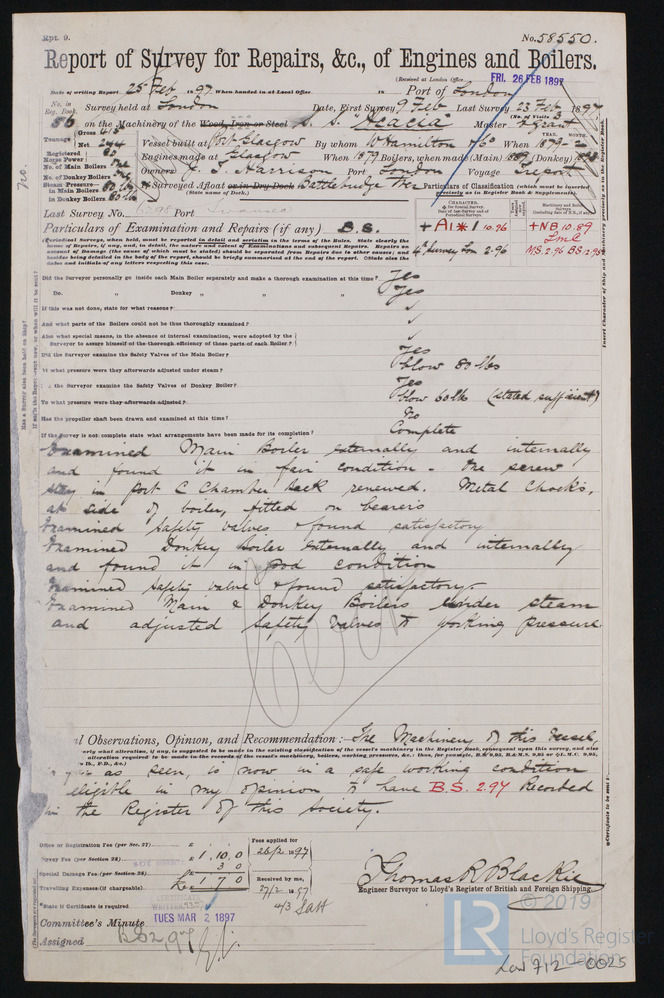 Rpt. 9.
No. 58550.
Report of Survey for Repairs, &c., of Engines and Boilers.
(Received at London Office FRI. 26 FEB 1897
Date of writing Report 25 Feb 1897 When handed in at Local Office 18 Port of London
No. in Reg. Book. Survey held at London Date, First Survey 9 Feb Last Survey 23 Feb 1897
(No. of Visits 3)
56 on the Machinery of the Wood, Iron or Steel S. S. "Acacia" Master Grant
Tonnage Gross 413 Net 244
Vessel built at Port Glasgow By whom W Hamilton & Co When 1879-2
YEAR. MONTH.
Registered Horse Power
Engines made at Glasgow When 1879 Boilers, when made (Main) (Donkey)
No. of Main Boilers One
No. of Donkey Boilers One
Owners Harrison Port London Voyage
Steam Pressure in Main Boilers 80 lbs
in Donkey Boilers 60 lbs
If Surveyed Afloat or in Dry Dock Battlebridge
(State name of Dock.)
Particulars of Classification (which must be inserted precisely as in Register Book & Supplements).
Last Survey No. Port
Particulars of Examination and Repairs (if any) B.S.
+ A1 * 1 10.96
+ NB 10.89
LMC
M.S. 2.96 B.S. 12.95
(Periodical Survey, when held, must be reported in detail and seriatim in the terms of the Rules. State clearly the
Did the Surveyor personally go inside each Main Boiler separately and make a thorough examination at this time? Yes
Do. " Donkey " " " Yes
If this was not done, state for what reasons?
And what parts of the Boilers could not be thus thoroughly examined?
Also what special means, in the absence of internal examination, were adopted by the
Surveyor to assure himself of the thorough efficiency of those parts of each Boiler?
Did the Surveyor examine the Safety Valves of the Main Boiler? Yes
To what pressure were they afterwards adjusted under steam? blow 80 lbs
Did the Surveyor examine the Safety Valves of Donkey Boiler? Yes
To what pressure were they afterwards adjusted? blow 60 lb (stated sufficient)
Has the propeller shaft been drawn and examined at this time? No
If the Survey is not complete state what arrangements have been made for its completion? Complete
Examined Main Boiler externally and internally
and found it in fair condition. One screw
stay in port C Chamber back renewed. Metal Chocks,
at side of boiler, fitted on bearers
Examined safety valves & found satisfactory
Examined Donkey Boiler externally and internally
and found it in good condition
Examined safety valve & found satisfactory.
Examined Main & Donkey Boilers under steam
and adjusted safety valves to working pressure.
l Observations, Opinion, and Recommendation:— The Machinery of this Vessel,
as seen, is now in a safe working condition
eligible in my opinion to have B.S. 2.97 Recorded
in the Register of this Society.
Office or Registration Fee (per Sec. 27)
Survey Fee (per Section 28) £ 1.10.0
Special Damage Fee (per Section 28) £ 3 0
Travelling Expenses (if chargeable) £ 1 7 0
Fees applied for
26/2 1897
Received by me,
27/2 1897
Thomas R. Blackie
Engineer Surveyor to Lloyd's Register of British and Foreign Shipping.
State if Certificate is required
Committee's Minute TUES MAR 2 1897
Assigned BS 2,97
© 2019
LR
Lloyd's Register
Foundation
Lon 712-0025